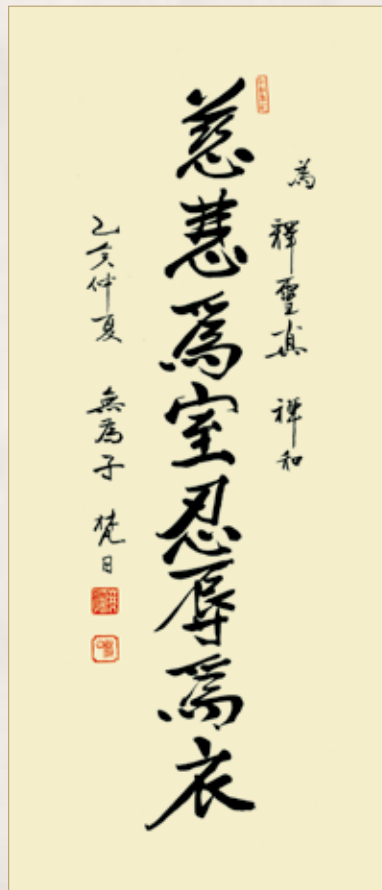 為 釋聖真 禪和
慈慧為室忍辱為衣
乙亥仲夏 無為子 梵日